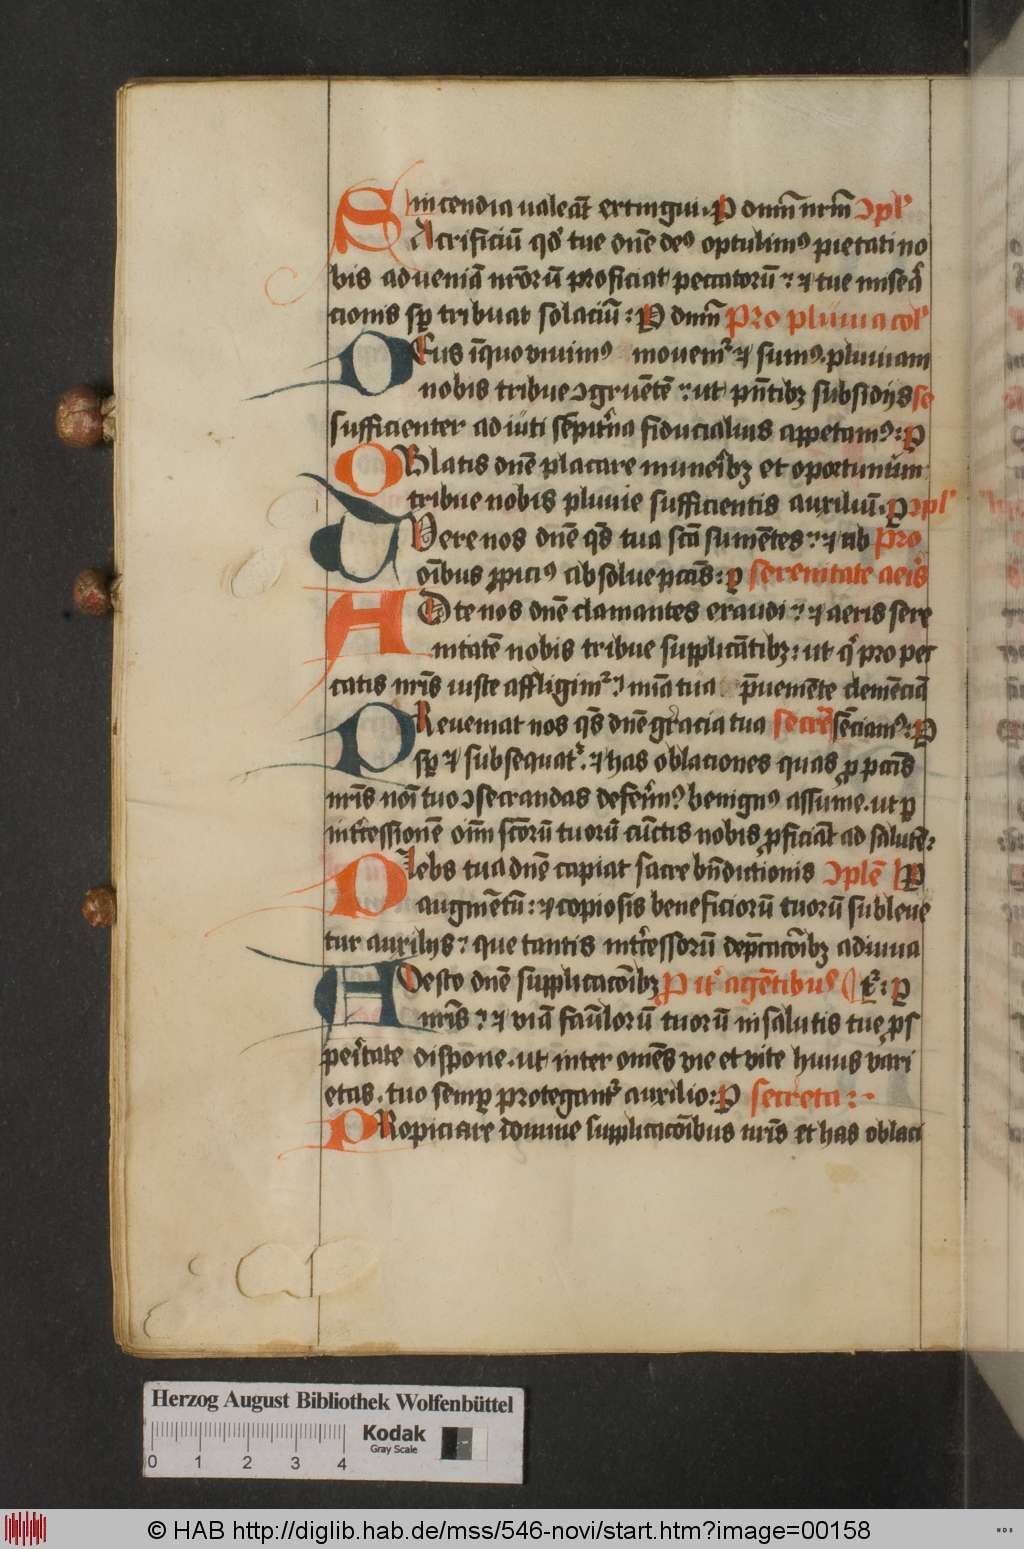 incendia valeāt extingui. P dnm̄ nrm̄ ꝯpl'
SAcrificiū qd' tue dnē deꝰ optulimꝰ pietati no
bis ad veniā nrōrū proficiat peccatorū : ⁊ tue miseͣ
cionis sꝑ tribuat solaciū : P dnm̄ Pro pluuia col'
DEus ī quo viuimꝰ mouemͬ ⁊ sumꝰ. pluuiam
nobis tribue ꝯgruētē : ut pn̄tibꝫ subsidijs se
sufficienter adiuti sēpitͥna fiducialius appetamꝰ : P
OBlatis dnē placare muneͥbꝫ et oportunum
tribue nobis pluuie sufficientis auxiliū. P ꝯpl'
TVere nos dnē qs̄ tua scā sumētes : ⁊ ab Pro
oībus ꝓpiciꝰ absolue pcc̄is : P serenitate aeris
AD te nos dnē clamantes exaudi : ⁊ aeris sere
nitatē nobis tribue supplicātibꝫ : ut qͥ pro pec
catis nrīs iuste affligimͬ : mīa tua p̄ueniēte clemēciā
PReueniat nos qs̄ dnē gracia tua secre sēciamꝰ : P
sꝑ ⁊ subsequatͬ. ⁊ has oblaciones quas ꝓ pcc̄is
nrīs noī tuo ꝯsecrandas deferimꝰ benignꝰ assume. ut ꝑ
intͥcessionē oīm scōrū tuorū cūctis nobis ꝓficiāt ad salutē :
PLebs tua dnē capiat sacre bn̄dictionis ꝯplē P
augmētū : ⁊ copiosis beneficiorū tuorū subleue
tur auxilijs : que tantis intͥcessorū dep̄cacōibꝫ adiuua
ADesto dnē supplicacōibꝫ P itͬ agētibus tͬ : P
nrīs : ⁊ viā famlorū tuorū in salutis tue ꝓs
peritate dispone. ut inter omēs vie et vite huius vari
etas. tuo semꝑ protegantͬ auxilio : P secreta :
PRopiciare domine supplicacōibus nrīs et has oblaci
Herzog August Bibliothek Wolfenbüttel
Kodak
Gray Scale
0 1 2 3 4
© HAB http://diglib.hab.de/mss/546-novi/start.htm?image=00158